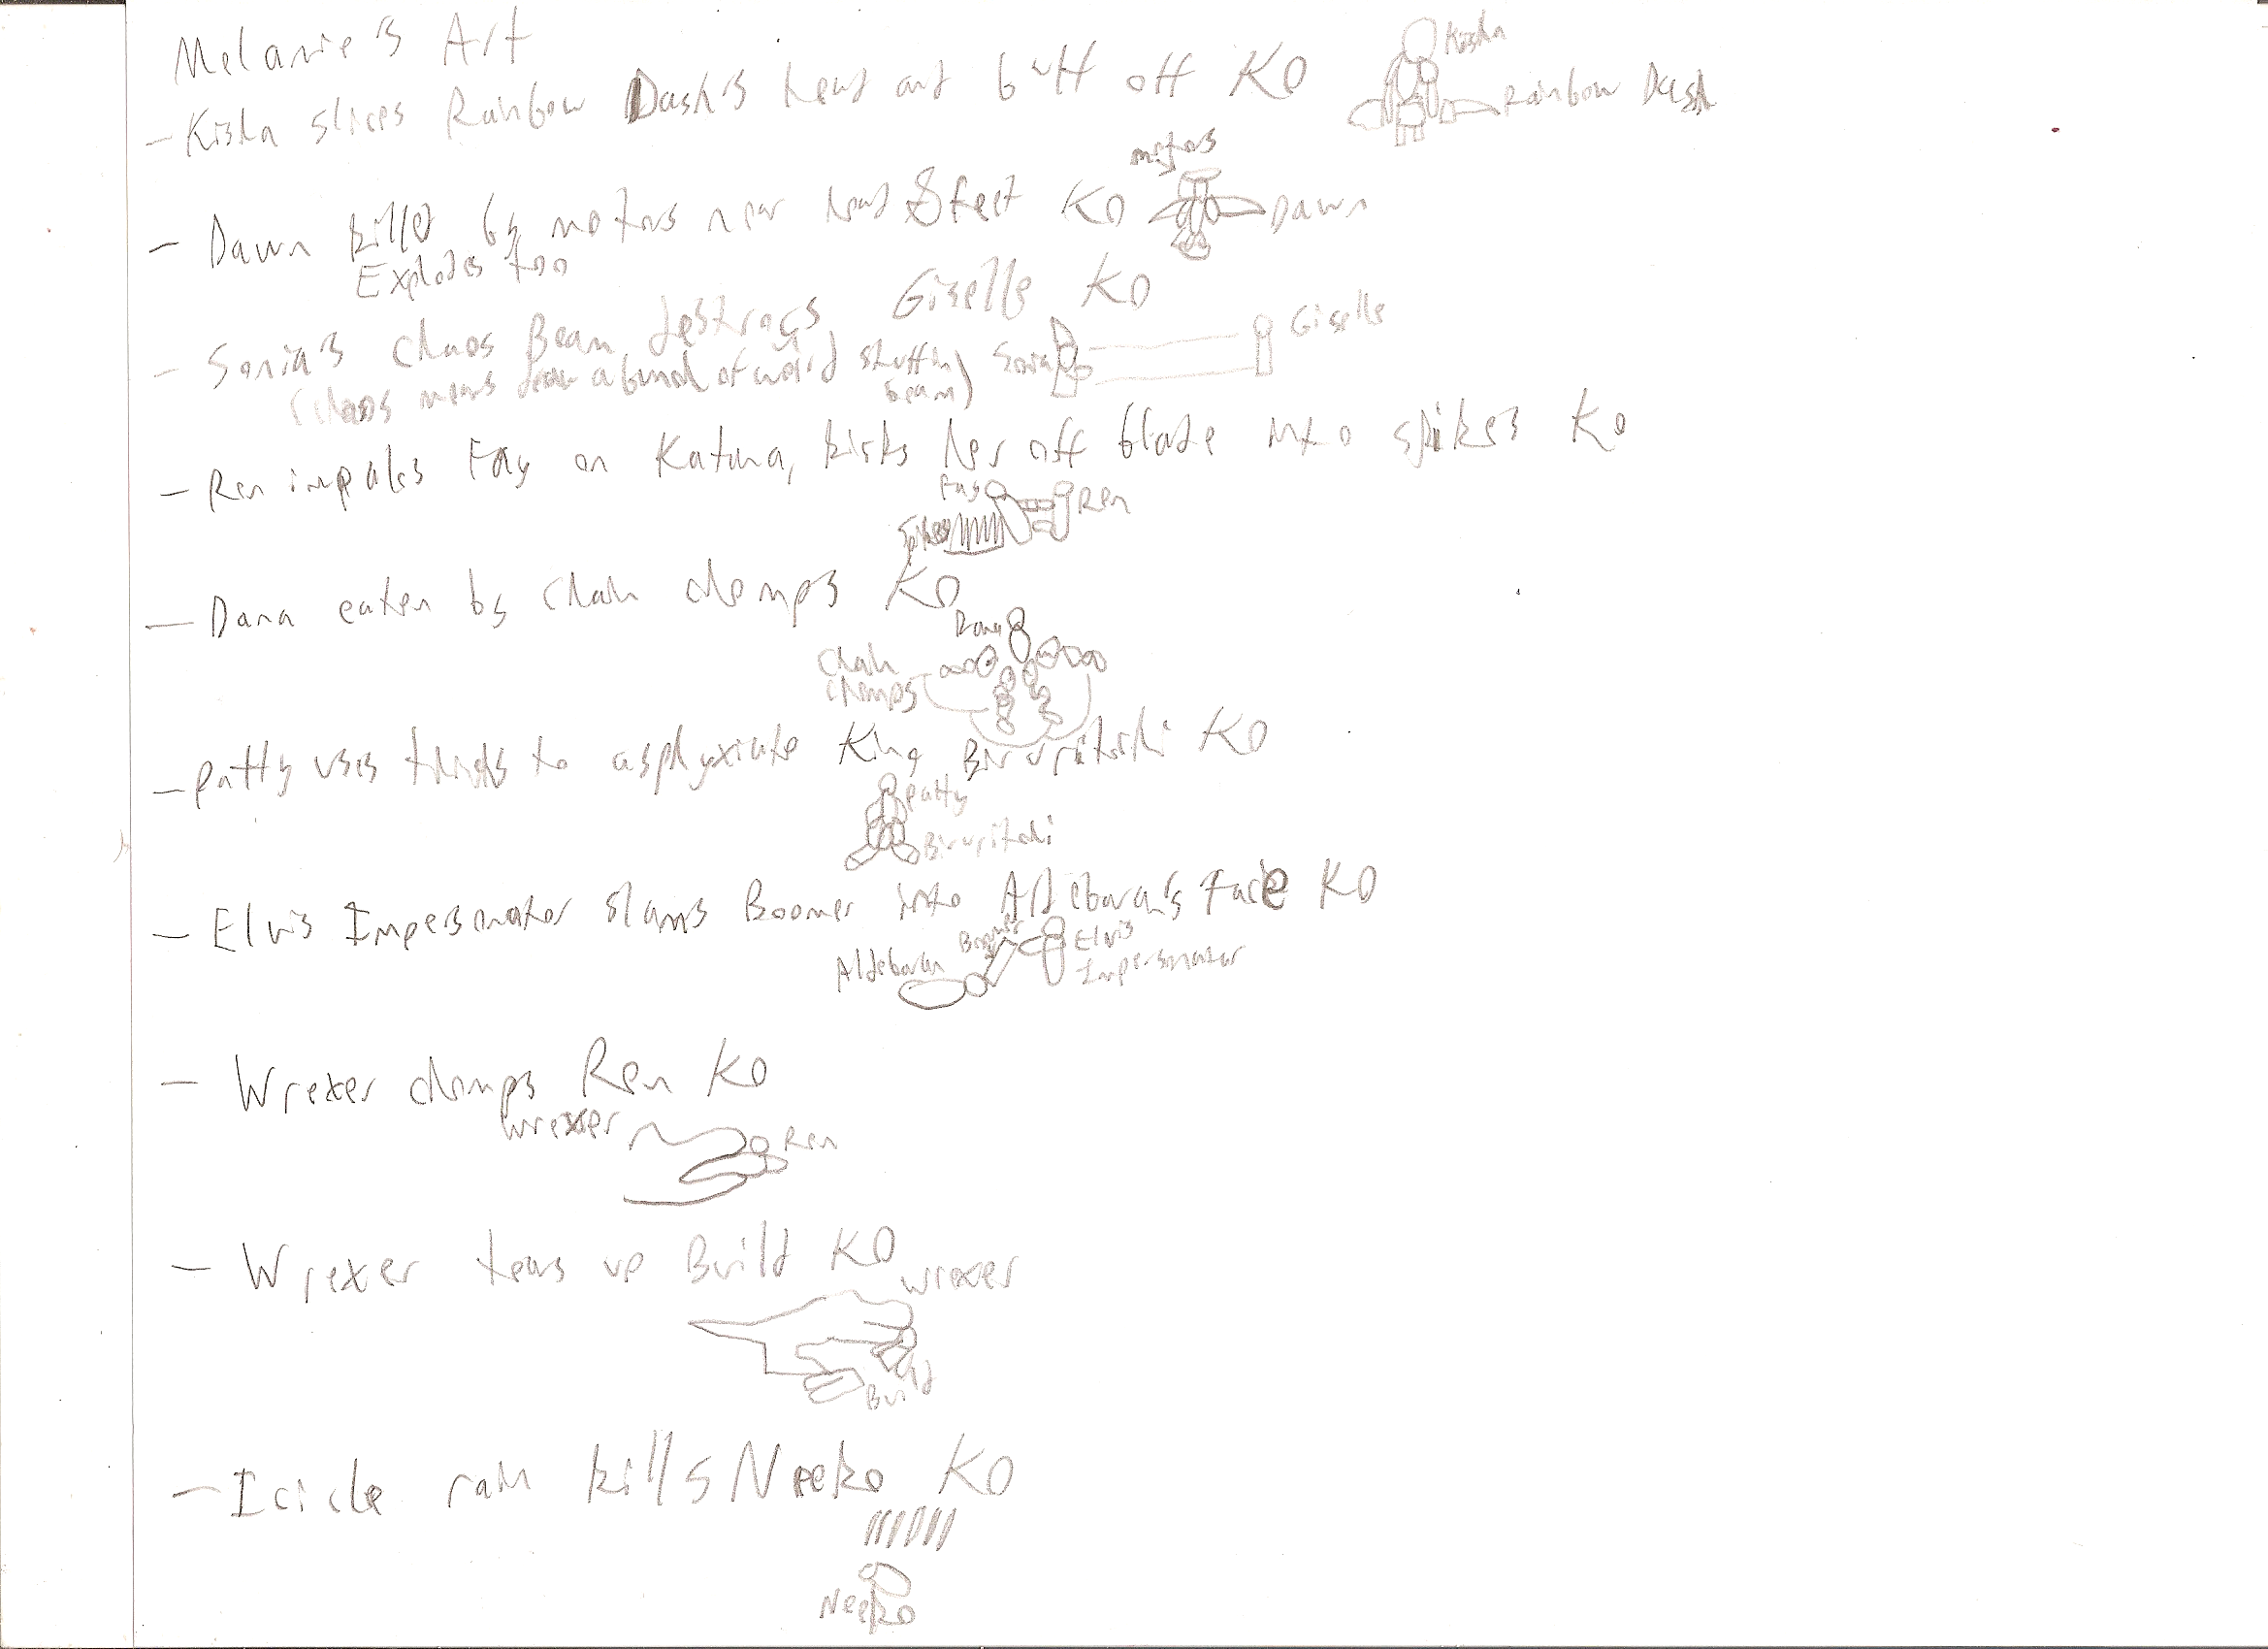 Melanie's Art
- Kisha slices Rainbow Dash's head and butt off KO
Kisha
Rainbow Dash
- Dawn killed by motors near head & feet KO
Explodes too
motors
Dawn
- Sonia's Chaos Beam destroys Giselle KO
(Chaos means draw a bunch of weird stuff in beam)
Sonia
Giselle
- Ren impales Fay on Katana, kicks her off blade into spikes KO
Fay
Ren
Spikes
- Dana eaten by Chain chomps KO
Dana
Chain
chomps
- Patty uses thighs to asphyxiate King KO
Patty
- Elvis Impersonator slams Boomer into Aldebaran's Face KO
Aldebaran
Boomer
Elvis
Impersonator
- Wrexer chomps Ren KO
Wrexer
Ren
- Wrexer tears up Build KO
Wrexer
Build
- Icicle rain kills Neeko KO
Neeko